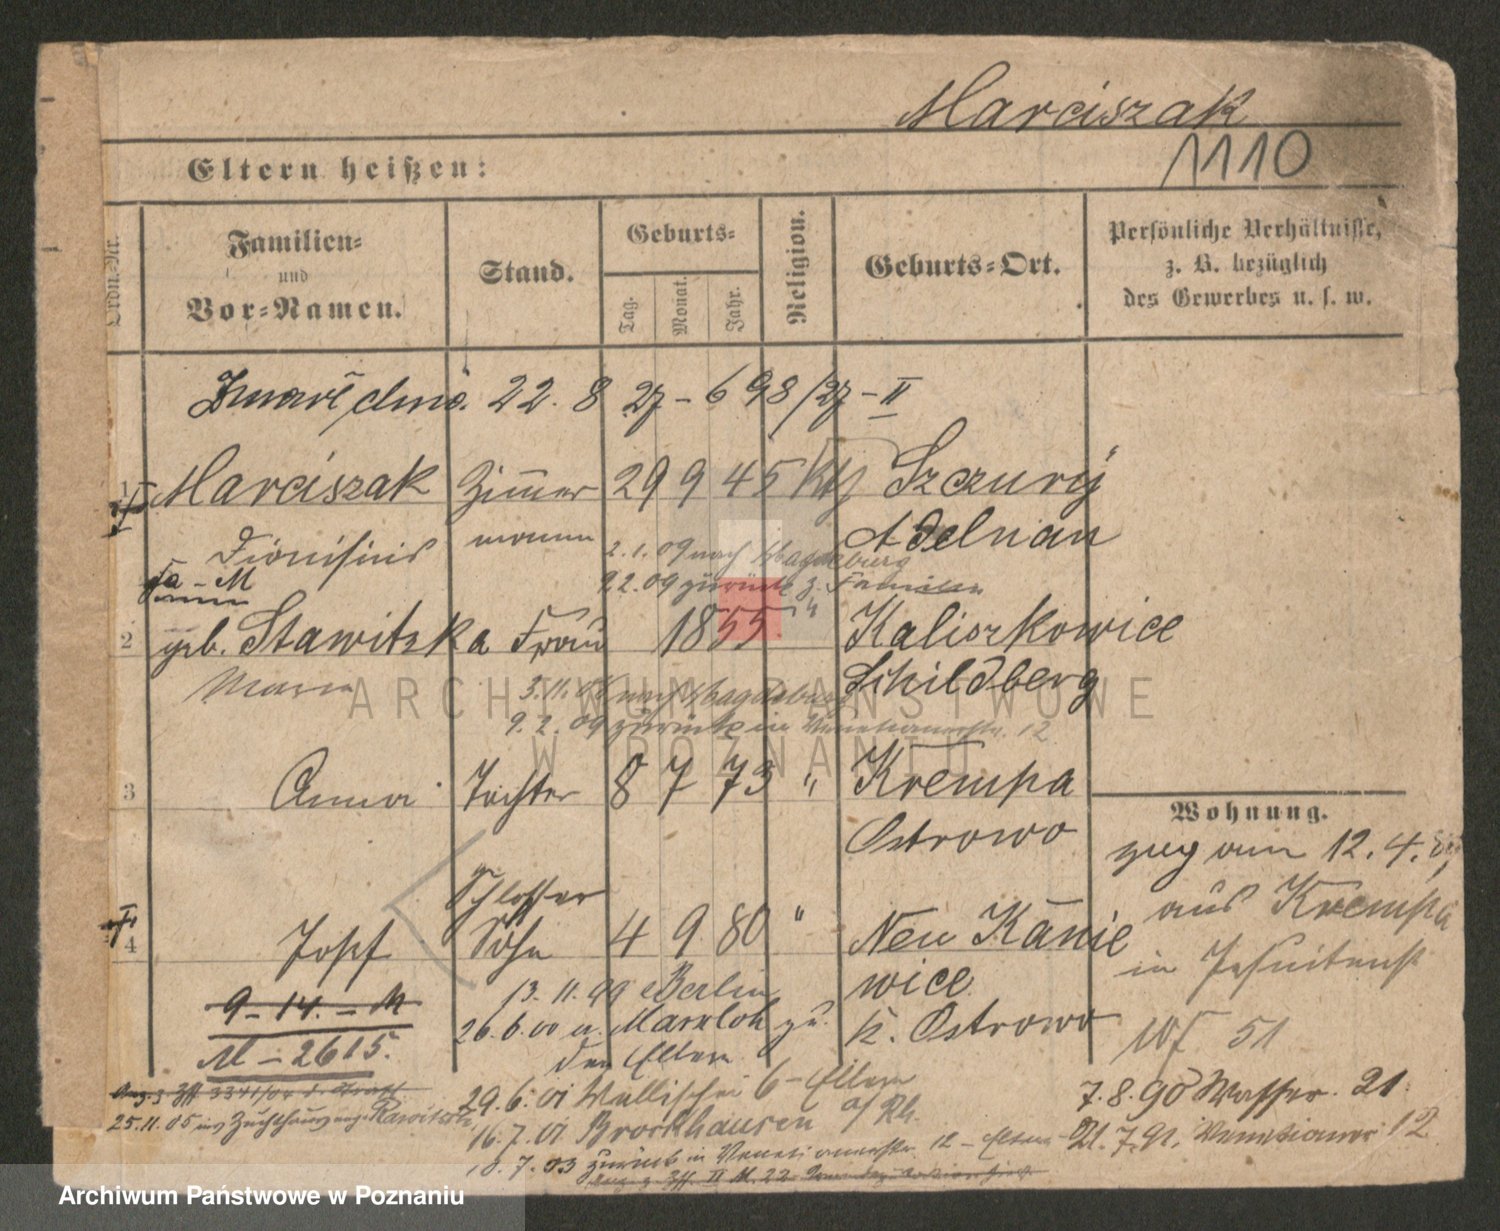 Marciszak
1110
Eltern heißen:
Ordn.-Nr.
Familien-
und
Vor-Namen.
Stand.
Geburts-
Tag.
Monat.
Jahr.
Religion.
Geburts-Ort.
Persönliche Verhältnisse,
z. B. bezüglich
des Gewerbes u. s. w.
22. 8 27 - 698/27 - II
1 Marciszak Zimmer 29 9 45 Kth Szczury
Dionisius mann Adelnau
2. 1. 09 nach Magdeburg
9 2. 09 zurück z. Familie
2 geb. Stawitzka Frau 1855 " Kaliszkowice
Maria Schildberg
3. 11. 08 nach Magdeburg
9. 2. 09 zurück in Venetianerstr. 12
3 Anna Tochter 8 7 73 " Krempa
Ostrowo
Wohnung.
zug am 12. 4.
aus Krempa
in Jesuitenst
Wf 51
Schlosser
4 Josef Sohn 4 9 80 " Neu Kamie
wice
K. Ostrowo
9 - 14. - M
M - 2615.
13. 11. 99 Berlin
26. 6. 00 a. Marxloh zu
den Eltern
29. 6. 01 Wallischei 6 - Eltern
16. 7. 01 Brockhausen a/Rh.
7. 03 zurück in Venetianerstr. 12 - Eltern
25. 11. 05 ins Zuchthaus Rawitsch
7. 8. 90 Wasser. 21.
21. 7. 91. Venetianer 12
ARCHIWUM PAŃSTWOWE
W POZNANIU
Archiwum Państwowe w Poznaniu